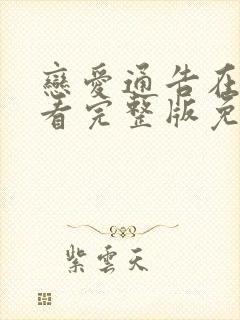 戀愛通告在
看完整版免
紫雲天